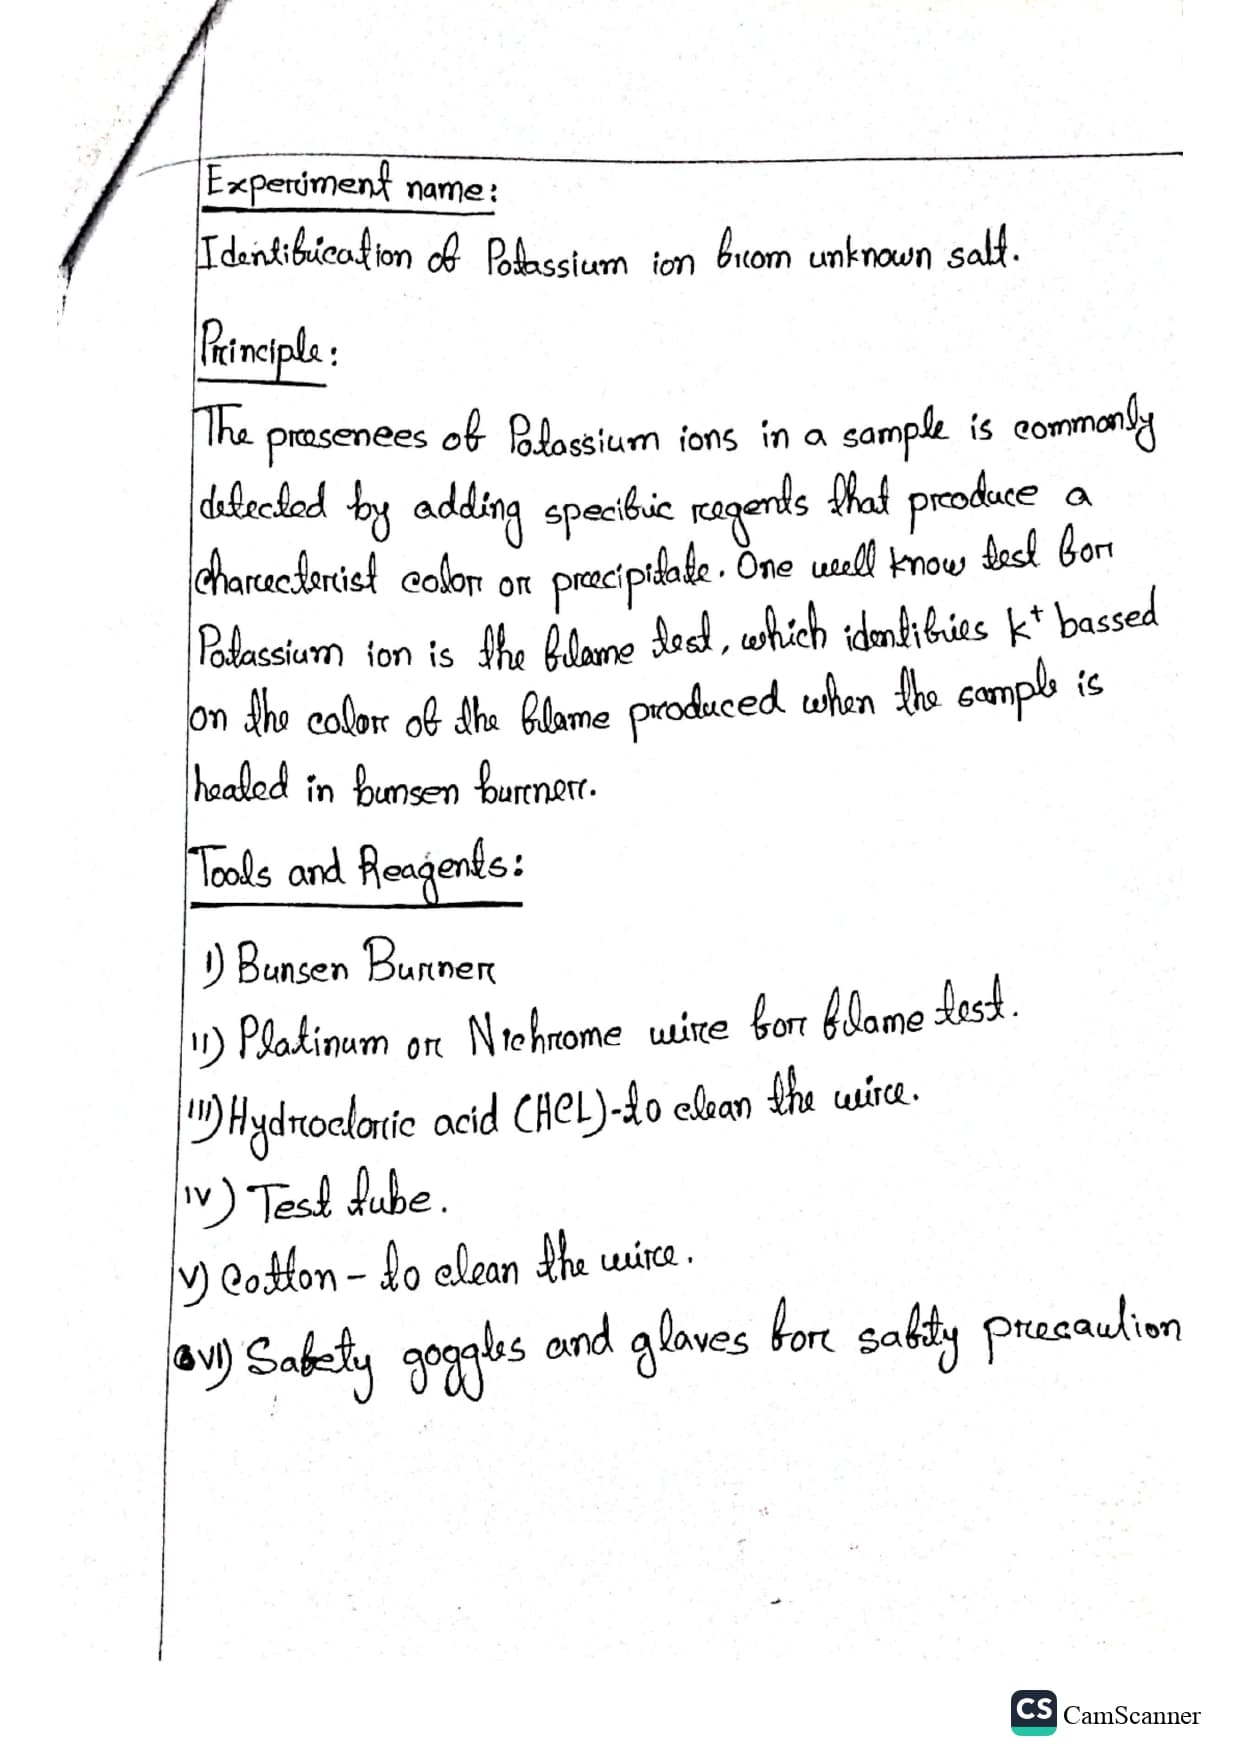 Experiment name:
Identification of Potassium ion from unknown salt.
Principle:
The presenees of Potassium ions in a sample is commonly
detected by adding specific regents that produce a
charecterist color or precipitate. One well know test for
Potassium ion is the flame test, which identifies K⁺ bassed
on the color of the flame produced when the sample is
heated in bunsen burner.
Tools and Reagents:
I) Bunsen Burner
II) Platinum or Nichrome wire for flame test.
III) Hydrocloric acid (HCL)-to clean the wire.
IV) Test tube.
V) Cotton - to clean the wire.
VI) Safety goggles and glaves for safity precaution
CS CamScanner